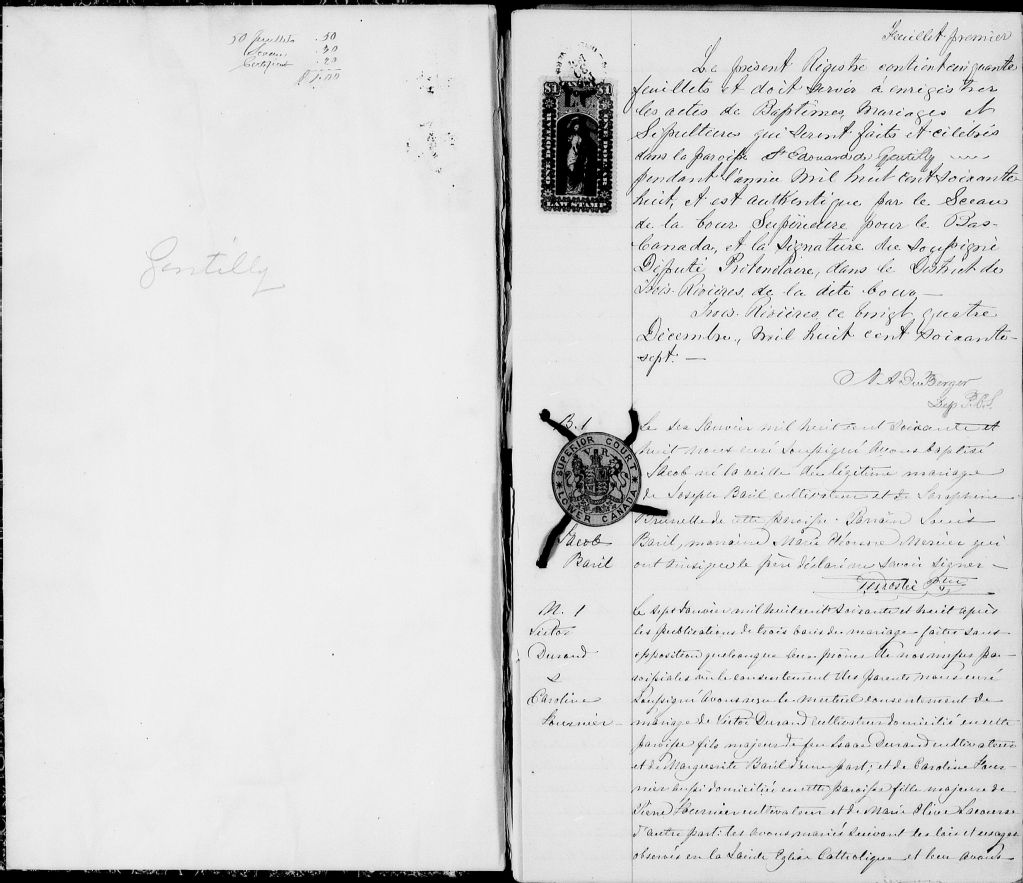 50 feuillets .50
Sceau .30
Certificat .20
$1.00
Gentilly
Feuillet premier
Le présent Régistre contient cinquante
feuillets et doit servir à enrégistrer
les actes de Baptêmes, Mariages et
Sépultures qui seront faits et célébrés
dans la paroisse St Edouard de Gentilly
pendant l'année mil huit cent soixante-
huit, et est authentiqué par le Sceau
de la Cour Supérieure pour le Bas-
Canada, et la signature du soussigné
Député Protonotaire, dans le District des
Trois-Rivières, de la dite Cour—
Trois-Rivières, ce vingt quatre
Décembre, mil huit cent soixante-
sept.—
$1 L.C. $1
ONE DOLLAR
ONE DOLLAR
LAW STAMP
N A DuBerger
Dep P.C.S.
B.1
SUPERIOR COURT
V R
LOWER CANADA
Jacob
Baril
Le six Janvier mil huit cent soixante et
huit nous curé soussigné avons baptisé
Jacob né la veille du légitime mariage
de Joseph Baril cultivateur et de Séraphine
Brunelle de cette paroisse. Parrain Louis
Baril, marraine Marie Mercier qui
ont ainsi que le père déclaré ne savoir signer—
M. 1
Victor
Durand
&
Caroline
Fournier
Le sept Janvier mil huit cent soixante et huit après
les publications de trois bans de mariage faites sans
opposition quelconque aux prônes de nos messes pa-
roissiales vu le consentement des parents nous curé
soussigné avons reçu le mutuel consentement de
mariage de Victor Durand cultivateur domicilié en cette
paroisse fils majeur de feu Isaac Durand cultivateur
et de Marguerite Baril d'une part; et de Caroline Four-
nier aussi domiciliée en cette paroisse fille majeure de
Pierre Fournier cultivateur et de Marie Olive Lacourse
d'autre part: les avons mariés suivant les lois et usages
observés en la Sainte Eglise Catholique et leur avons